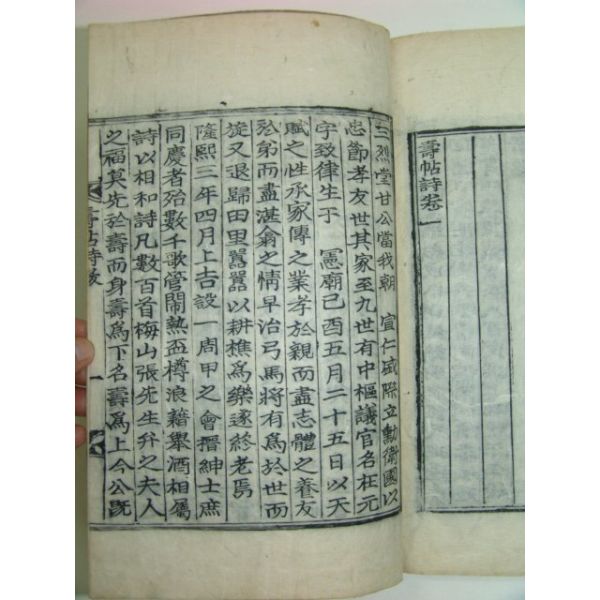 壽帖詩卷一
三烈堂甘公當我朝 宣仁盛際立勳衛國以
忠節孝友世其家至九世有中樞議官名在元
字致律生于 憲廟己酉五月二十五日以天
賦之性承家傳之業孝於親而盡志體之養友
於弟而盡湛翕之情早治弓馬將有爲於世而
旋又退歸田里囂囂以耕樵爲樂遂終老焉
隆熙三年四月上吉設一周甲之會搢紳士庶
同慶者殆數千歌管鬧熱盃樽浪籍擧酒相屬
詩以相和詩凡數百首梅山張先生弁之夫人
之福莫先於壽而身壽爲下名壽爲上今公旣
壽帖詩 一